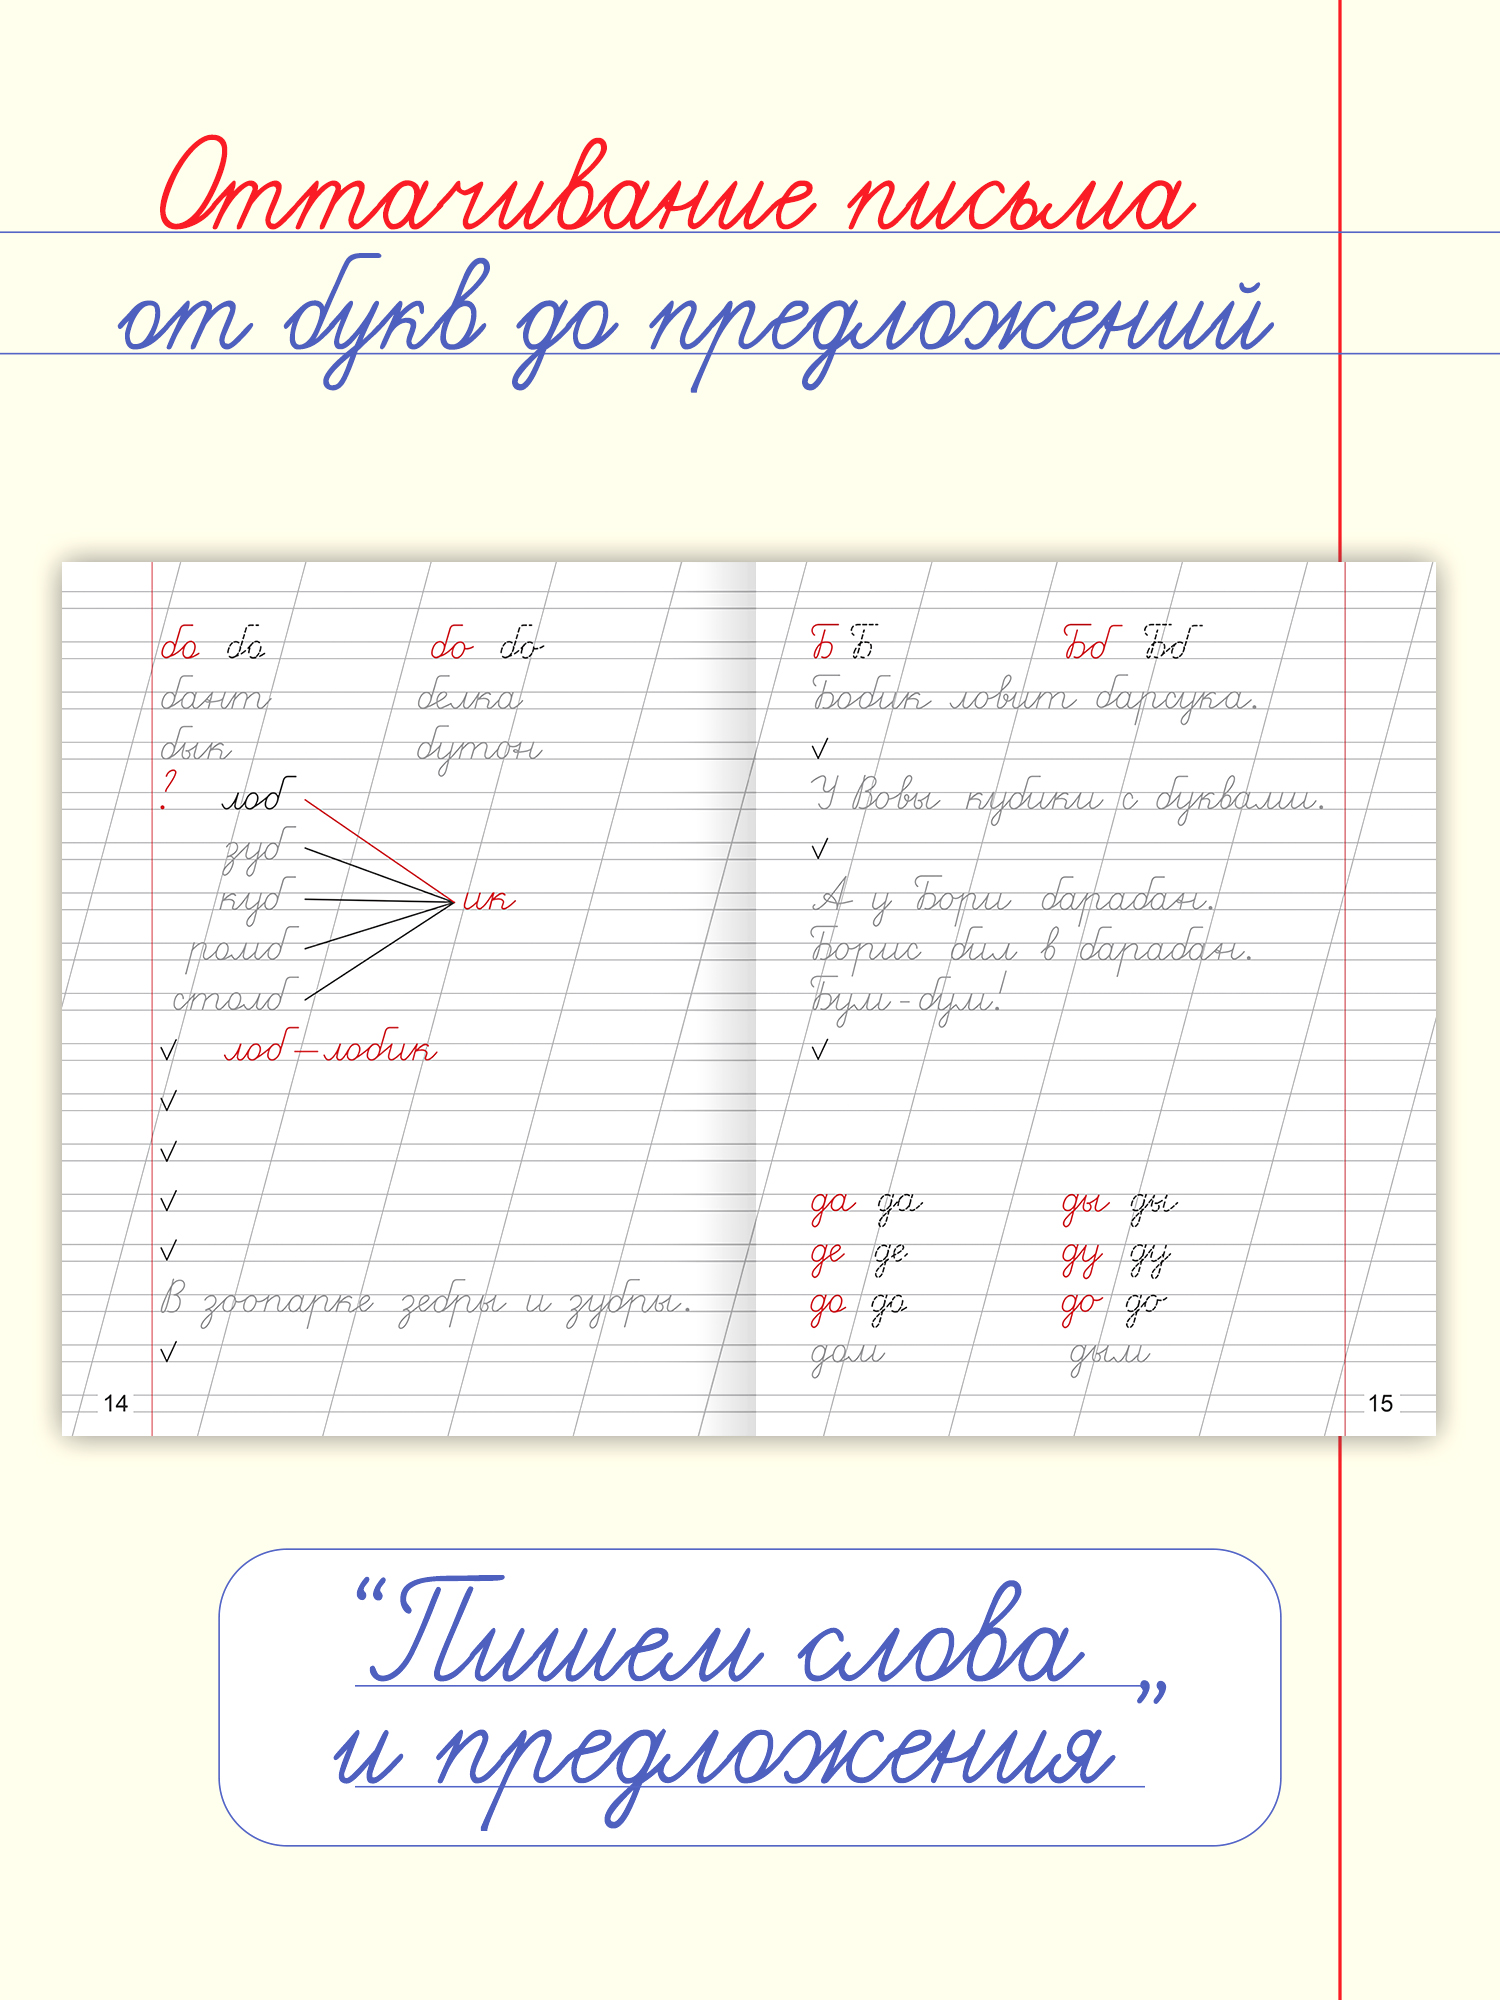 Оттачивание письма
от букв до предложений
ба ба бо бо
бант белка
бык бутон
? лоб
зуб
куб ик
ромб
столб
✓ лоб – лобик
✓
✓
✓
✓
В зоопарке зебры и зубры.
✓
14
Б Б Бб Бб
Бобик ловит барсука.
✓
У Вовы кубики с буквами.
✓
А у Бори барабан.
Борис бил в барабан.
Бум-бум!
✓
да да ды ды
де де ду ду
до до до до
дом дым
15
“Пишем слова
и предложения”